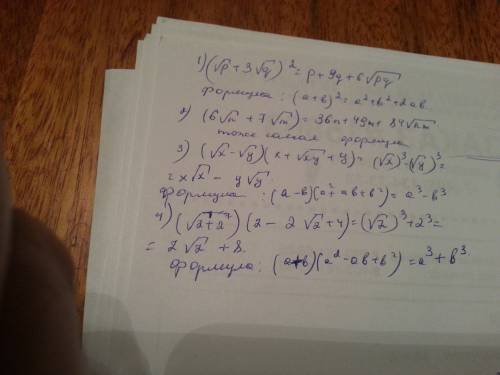 1) (√p + 3√q)² = p + 9q + 6√pq
формула : (a+b)² = a²+b²+2ab
2) (6√n + 7√m) = 36n + 49m + 84√nm
тоже самая формула
3) (√x - √y)(x + √xy + y) = (√x)³ - (√y)³ =
= x√x - y√y
формула : (a-b)(a²+ab+b²) = a³-b³
4) (√2+2)(2 - 2√2 + 4) = (√2)³ + 2³ =
= 2√2 + 8
формула: (a+b)(a²-ab+b²) = a³+b³